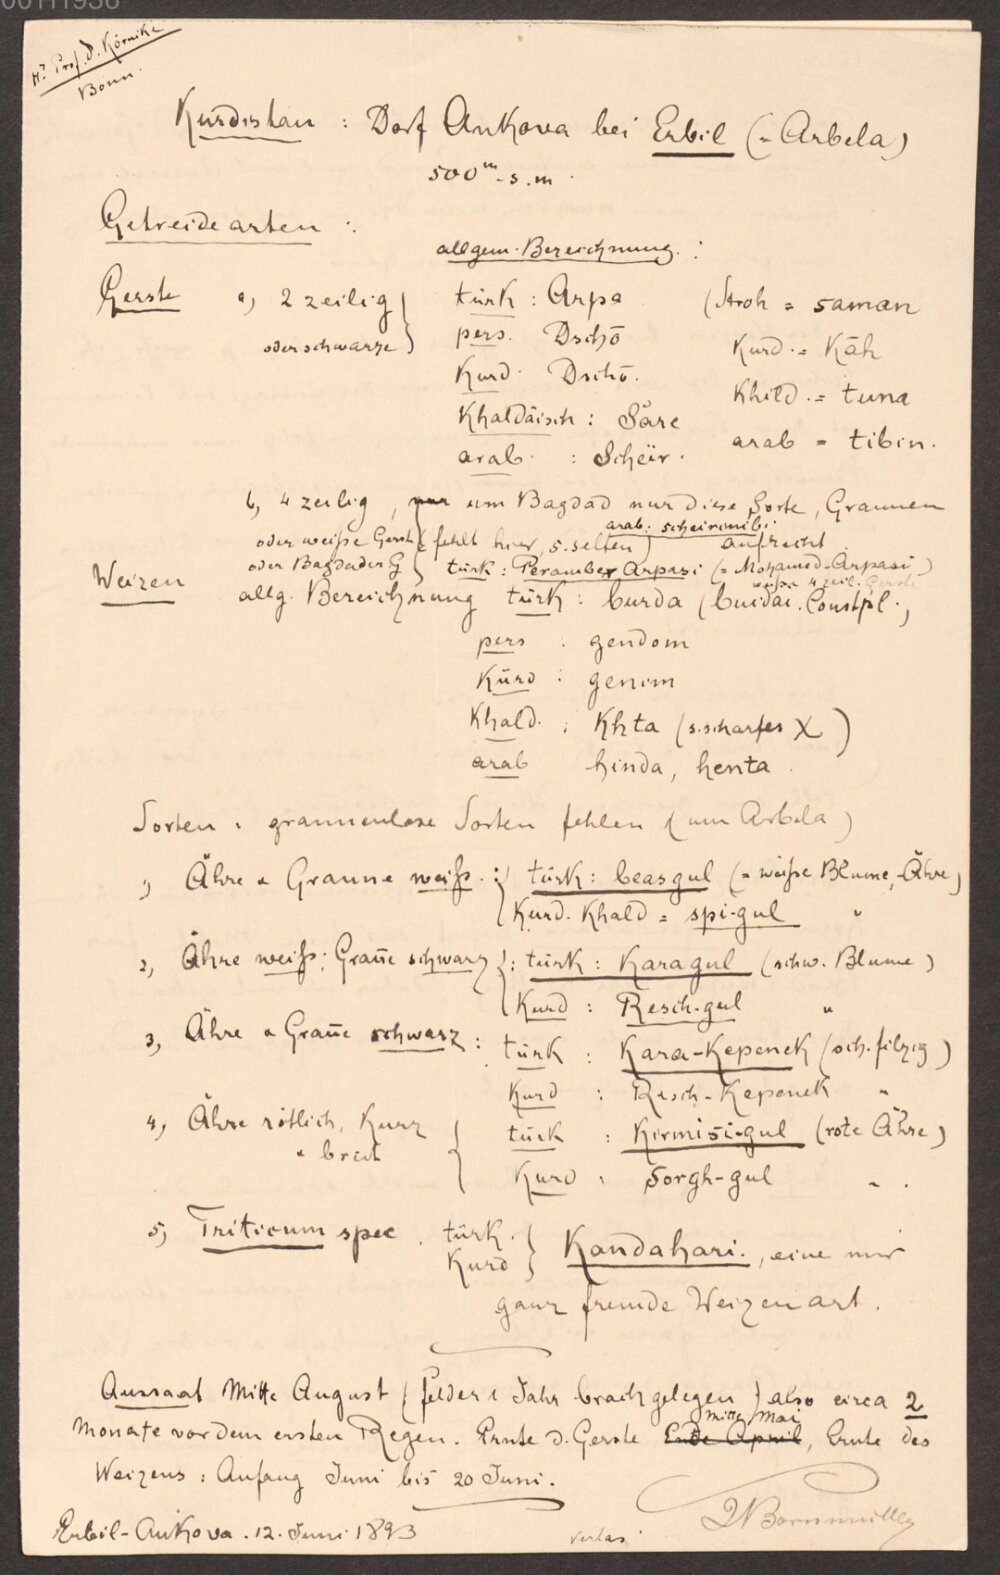 00111938
Hr. Prof. D. Körnike
Bonn.
Kurdistan : Dorf Ankova bei Erbil (= Arbela)
500 m - s. m.
Getreidearten :
allgem. Bezeichnung. :
Gerste a, 2 zeilig türk : Arpa (Stroh = saman
oder schwarze) pers. Dschō Kurd. = Kāh
Kurd. Dschō. Khild. = tuna
Khaldäisch : Säre arab = tibin.
arab. : Scheïr.
b, 4 zeilig, nur um Bagdad nur diese Sorte, Grannen
oder weiße Gerste (fehlt hier, s. selten) arab. scheirinibi aufrecht
oder Bagdader G türk : Peramber Arpasi (= Mohamed-Arpasi)
weiße 4 zeil. Gerste
Weizen allg. Bezeichnung türk : burda (buidai. Constpl.)
pers : gendom
Kurd : genim
Khald. : Khta (s. scharfes X)
arab hinda, henta.
Sorten : grannenlose Sorten fehlen (um Arbela)
1, Ähre & Granne weiß. : türk : beasgul (= weiße Blume, Ähre)
Kurd. Khald = spi-gul "
2, Ähre weiß; Grañe schwarz : türk : Karagul (schw. Blume)
Kurd : Resch-gul "
3, Ähre & Grañe schwarz : türk : Kara-Kepenek (sch. filzig)
Kurd : Resch-Kepenek "
4, Ähre rötlich, Kurz türk : Kirmisi-gul (rote Ähre)
& breit Kurd : Sorgh-gul " .
5, Triticum spec. türk.
Kurd Kandahari., eine mir
ganz fremde Weizenart.
Aussaat Mitte August (Felder 1 Jahr brach gelegen) also circa 2
Monate vor dem ersten Regen. Ernte d. Gerste Ende April Mitte Mai, Ernte des
Weizens : Anfang Juni bis 20 Juni.
Erbil-Ankova. 12. Juni 1893 JBornmüller